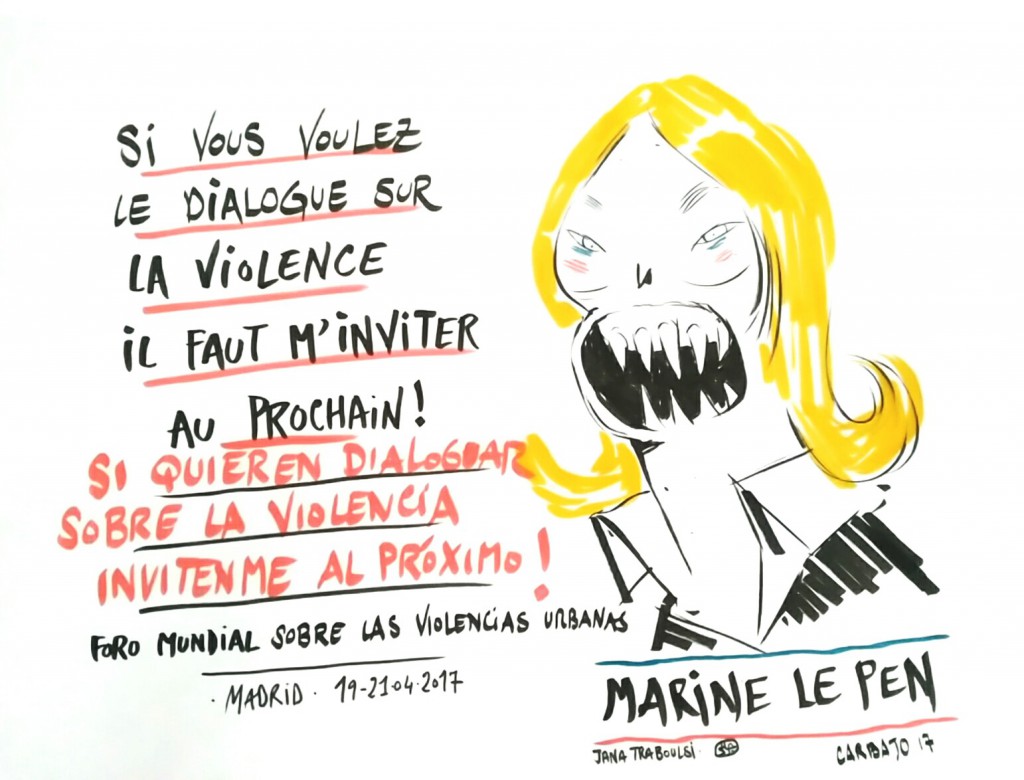 Si VOUS VOULEZ
LE DiALOGUE SUR
LA ViOLENCE
iL FAUT M'iNViTER
AU PROCHAiN!
Si QUiEREN DiALOGUAR
SOBRE LA ViOLENCÍA
INViTENME AL PRÓXIMO!
FORO MUNDIAL SOBRE LAS ViOLENCÍAS URBANAS
· MADRiD · 19-21·04·2017
MARiNE LE PEN
JANA TRABOULSi·
CARBAJO 17